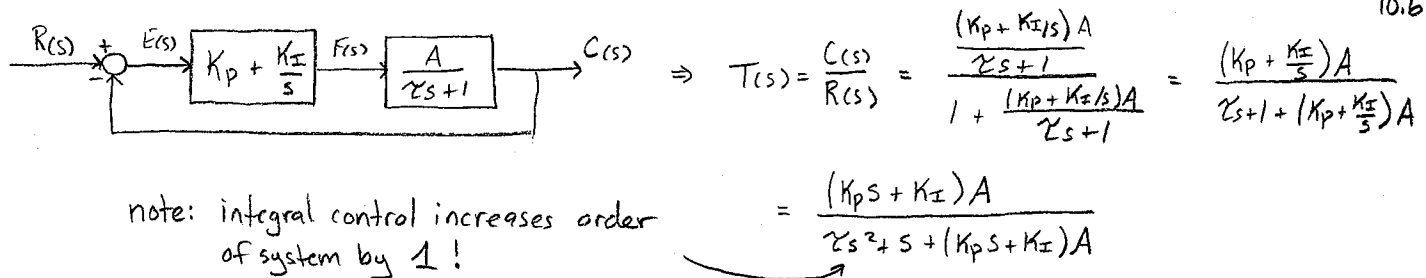 10.6
R(s) + − E(s) Kp + KI/s F(s) A/(τs+1) C(s) ⇒ T(s) = C(s)/R(s) = ((Kp + KI/s)A/(τs+1))/(1 + (Kp + KI/s)A/(τs+1)) = (Kp + KI/s)A/(τs+1+(Kp+KI/s)A)
note: integral control increases order
of system by 1 !
= (Kps + KI)A/(τs²+s+(Kps+KI)A)